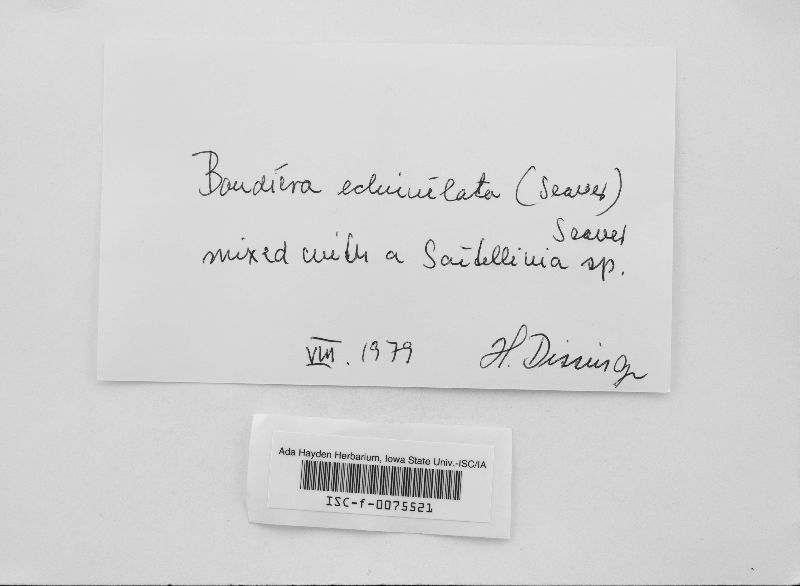 Boudiera echinulata (Seaver)
Seaver
mixed with a Scutellinia sp.
VIII. 1979 H. Dissing
Ada Hayden Herbarium, Iowa State Univ.-ISC/IA
ISC-f-0075521